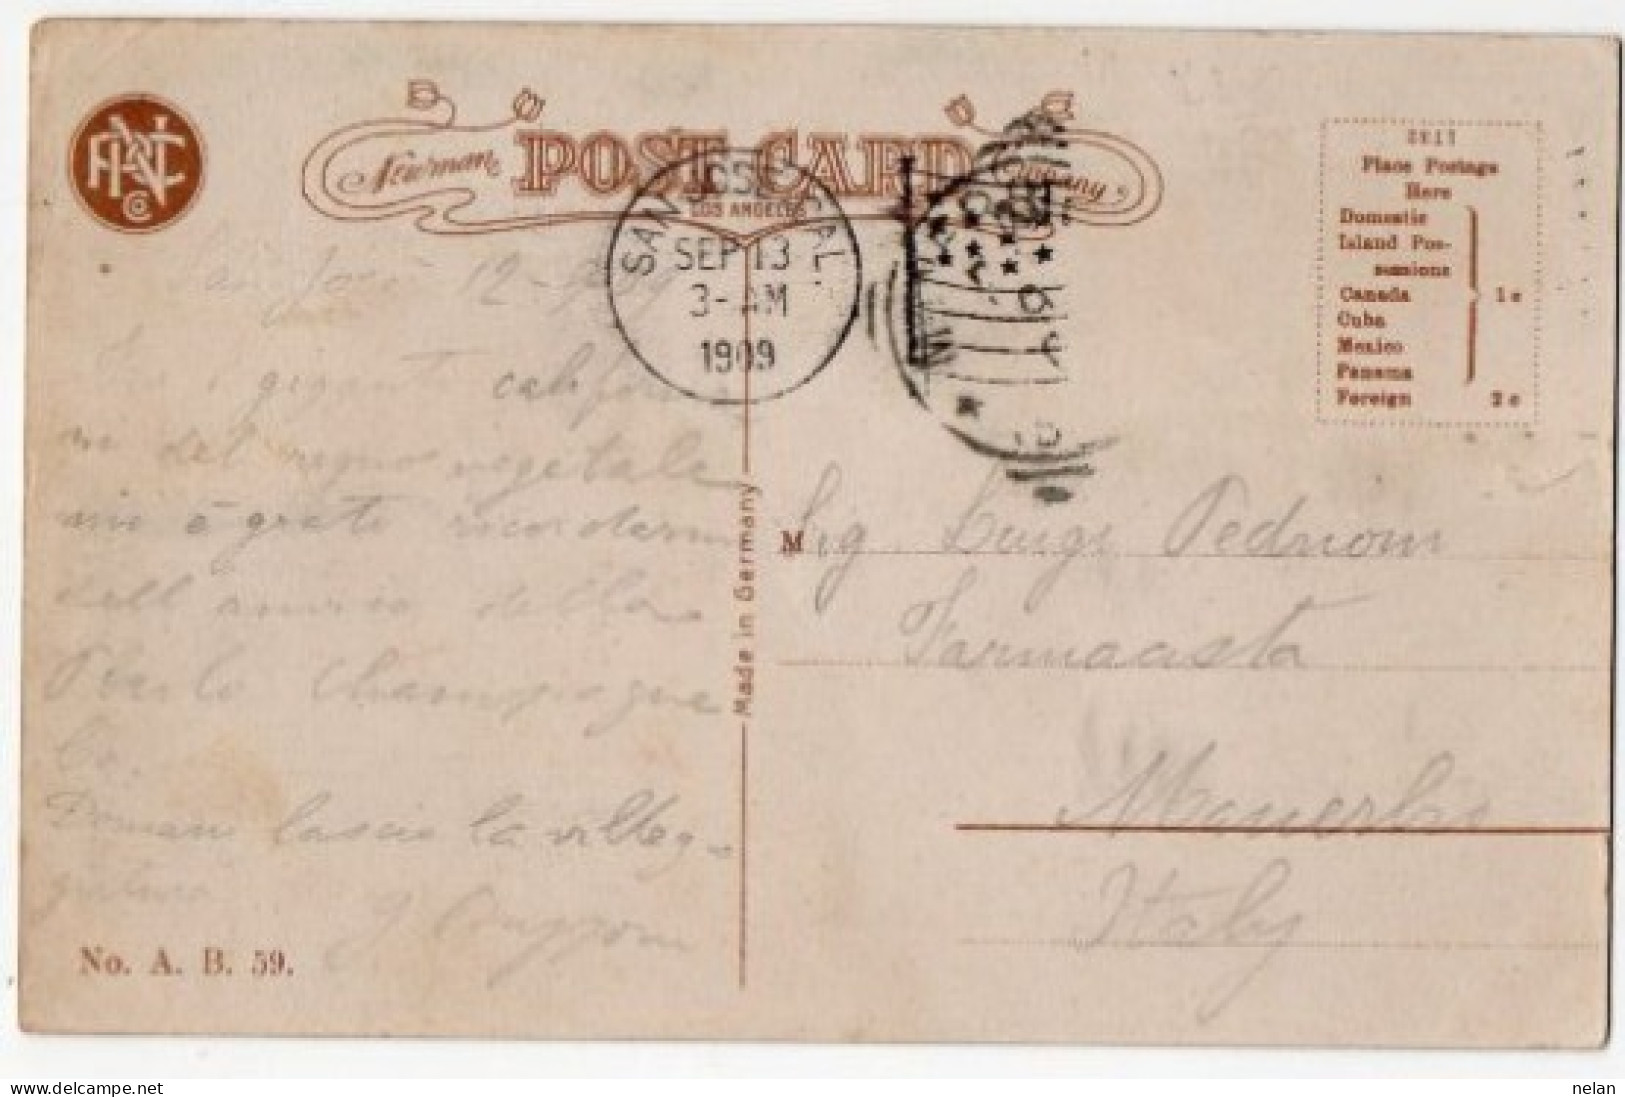 Newman POST CARD Company
LOS ANGELES
SAN JOSE CAL.
SEP 13
3-AM
1909
Place Postage
Here
Domestic
Island Pos-
sessions
Canada 1c
Cuba
Mexico
Panama
Foreign 2c
San José 12-9
i giganti califor
ni del regno vegetale
mi è grato ricordarmi
dell amico della
Champagne
Co.
Domani lascio la villeg-
giatura
No. A. B. 59.
Made in Germany
M
Sig Luigi Pedrioni
Farmacista
Manerbio
Italy
nelan